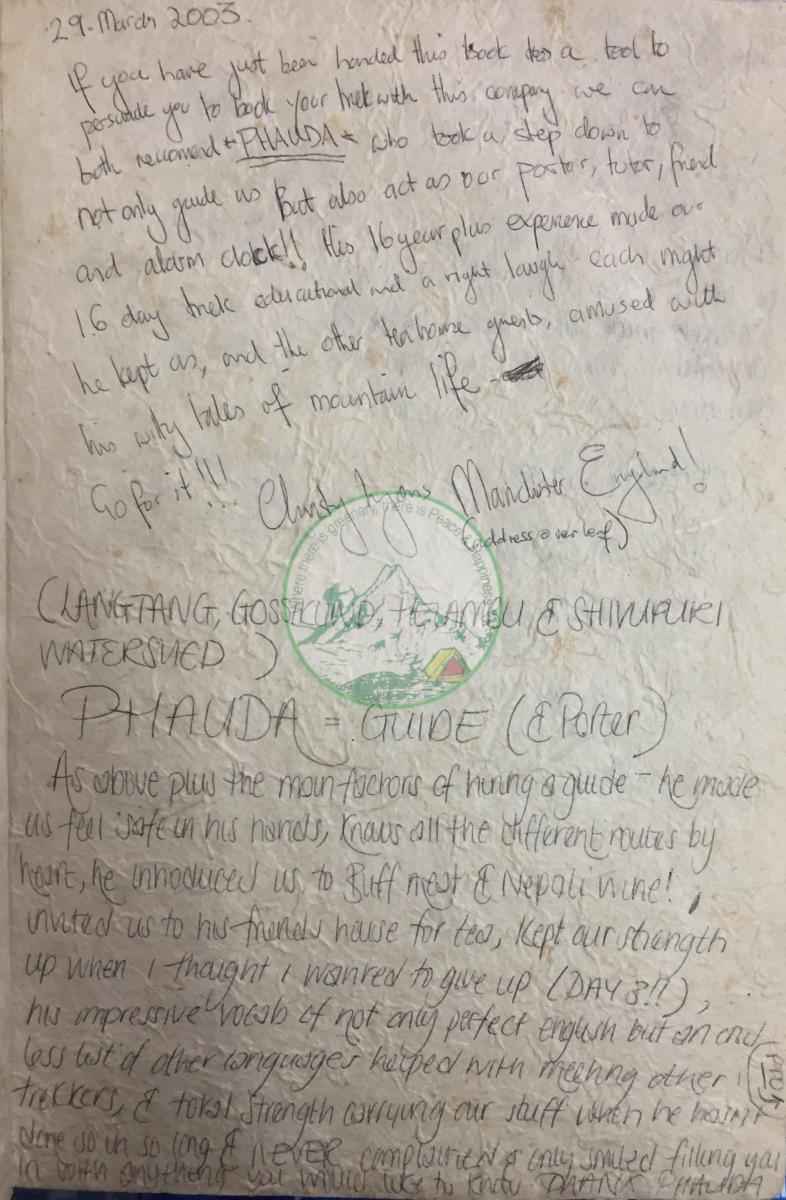 29. March 2003.
If you have just been handed this book as a tool to
persuade you to book your trek with this company we can
both reccomend *PHAUDA* who took a step down to
not only guide us But also act as our porter, tutor, friend
and alarm clock!! His 16 year plus experience made our
16 day trek educational and a right laugh each night
he kept us, and the other teahouse guests, amused with
his witty tales of mountain life -
Go for it!!! Christy Lyons Manchester England!
(address over leaf)
where there is greenery, there is Peace & Happiness
(LANGTANG, GOSSIKUND, HELAMBU & SHIVAPURI
WATERSHED )
PHAUDA = GUIDE (& Porter)
As above plus the main factors of hiring a guide - he made
us feel safe in his hands, Knows all the different routes by
heart, he introduced us to Buff meat & Nepali wine!,
invited us to his friends house for tea, Kept our strength
up when I thought I wanted to give up (DAY 3!!),
his impressive vocab of not only perfect english but an end
less list of other languages helped with meeting other
PTO
trekkers, & total strength carrying our stuff when he hasn't
done so in so long & NEVER complained & only smiled filling you
in with anything you would like to know THANX PHAUDA